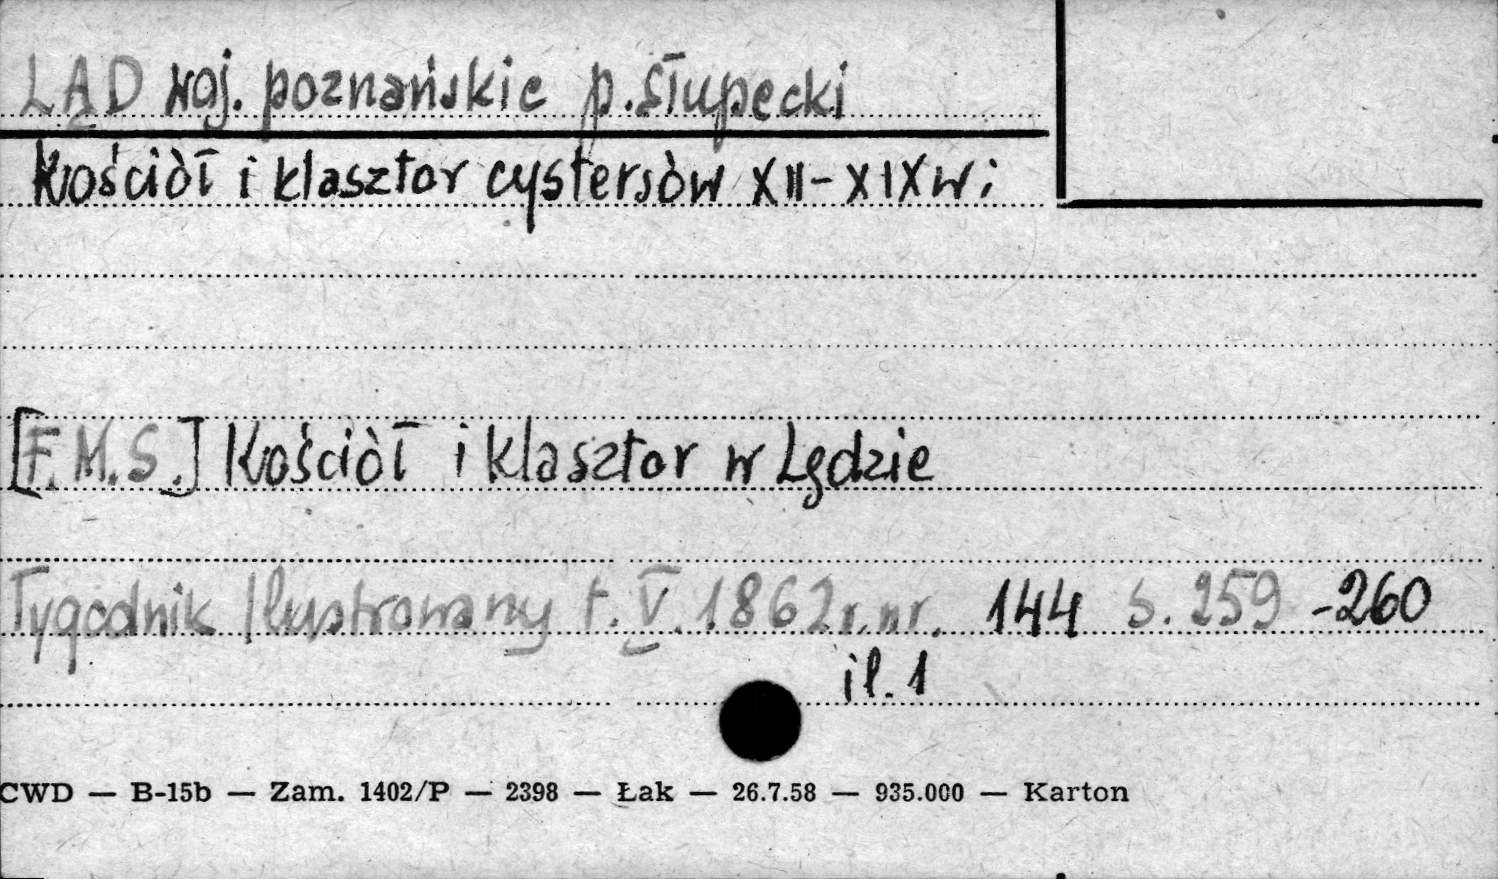 LĄD woj. poznańskie p. słupecki
Kościół i klasztor cystersów XII-XIXw;
[F.M.S.] Kościół i klasztor w Lędzie
Tygodnik Ilustrowany t. V. 1862 r. nr. 144 s. 259-260
il. 1
CWD — B-15b — Zam. 1402/P — 2398 — Łak — 26.7.58 — 935.000 — Karton